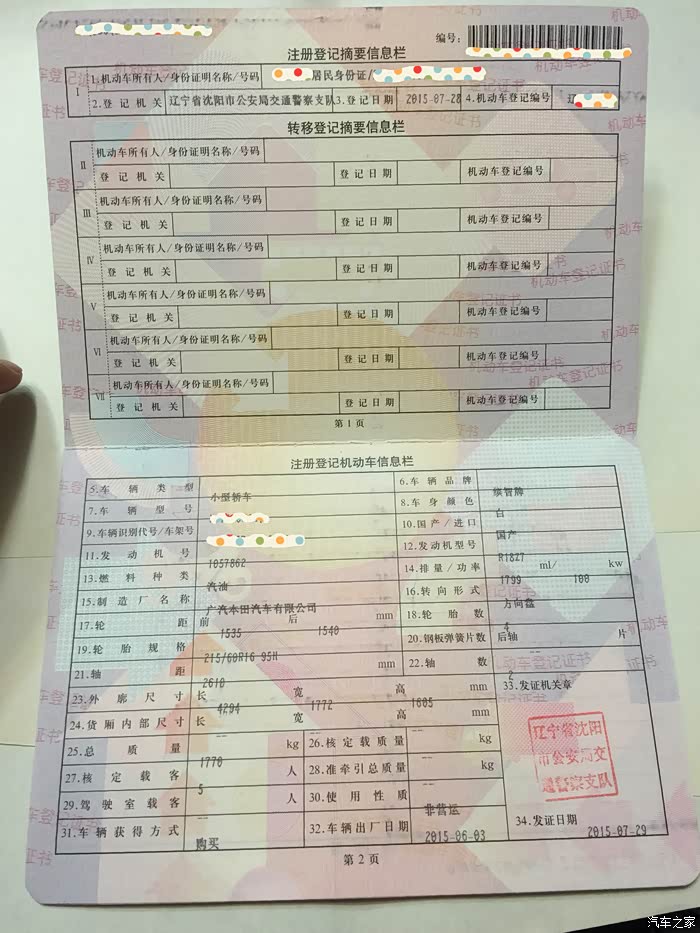 编号:
注册登记摘要信息栏
I 1.机动车所有人/身份证明名称/号码 居民身份证/
2.登记机关 辽宁省沈阳市公安局交通警察支队 3.登记日期 2015-07-28 4.机动车登记编号
转移登记摘要信息栏
II 机动车所有人/身份证明名称/号码
登记机关 登记日期 机动车登记编号
III 机动车所有人/身份证明名称/号码
登记机关 登记日期 机动车登记编号
IV 机动车所有人/身份证明名称/号码
登记机关 登记日期 机动车登记编号
V 机动车所有人/身份证明名称/号码
登记机关 登记日期 机动车登记编号
VI 机动车所有人/身份证明名称/号码
登记机关 登记日期 机动车登记编号
VII 机动车所有人/身份证明名称/号码
登记机关 登记日期 机动车登记编号
第1页
注册登记机动车信息栏
5.车辆类型 小型轿车 6.车辆品牌 缤智牌
7.车辆型号 8.车身颜色 白
9.车辆识别代号/车架号 10.国产/进口 国产
11.发动机号 1057862 12.发动机型号 R18Z7
13.燃料种类 汽油 14.排量/功率 1799 ml/ 100 kw
15.制造厂名称 广汽本田汽车有限公司 16.转向形式 方向盘
17.轮距 前 1535 后 1540 mm 18.轮胎数 4
19.轮胎规格 215/60R16 95H 20.钢板弹簧片数 后轴 -- 片
21.轴距 2610 mm 22.轴数 2
23.外廓尺寸 长 4294 宽 1772 高 1605 mm 33.发证机关章
24.货厢内部尺寸 长 -- 宽 -- 高 -- mm
25.总质量 1770 kg 26.核定载质量 -- kg
27.核定载客 5 人 28.准牵引总质量 -- kg
29.驾驶室载客 -- 人 30.使用性质 非营运
31.车辆获得方式 购买 32.车辆出厂日期 2015-06-03 34.发证日期 2015-07-29
辽宁省沈阳
市公安局交
通警察支队
第2页
汽车之家